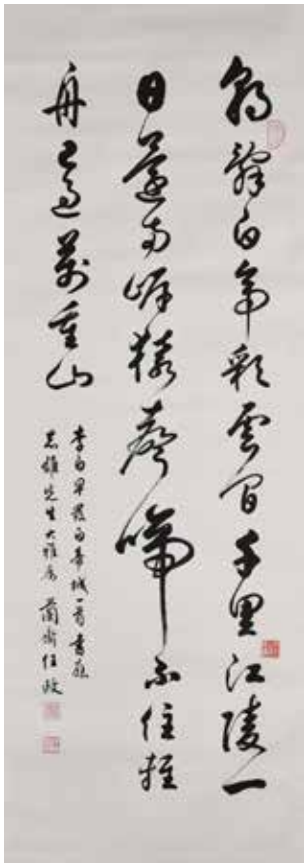 朝辭白帝彩雲間千里江陵一
日還兩岸猿聲啼不住輕
舟已過萬重山
李白早發白帝城一首書應
志雄先生大雅屬 蘭齋任政